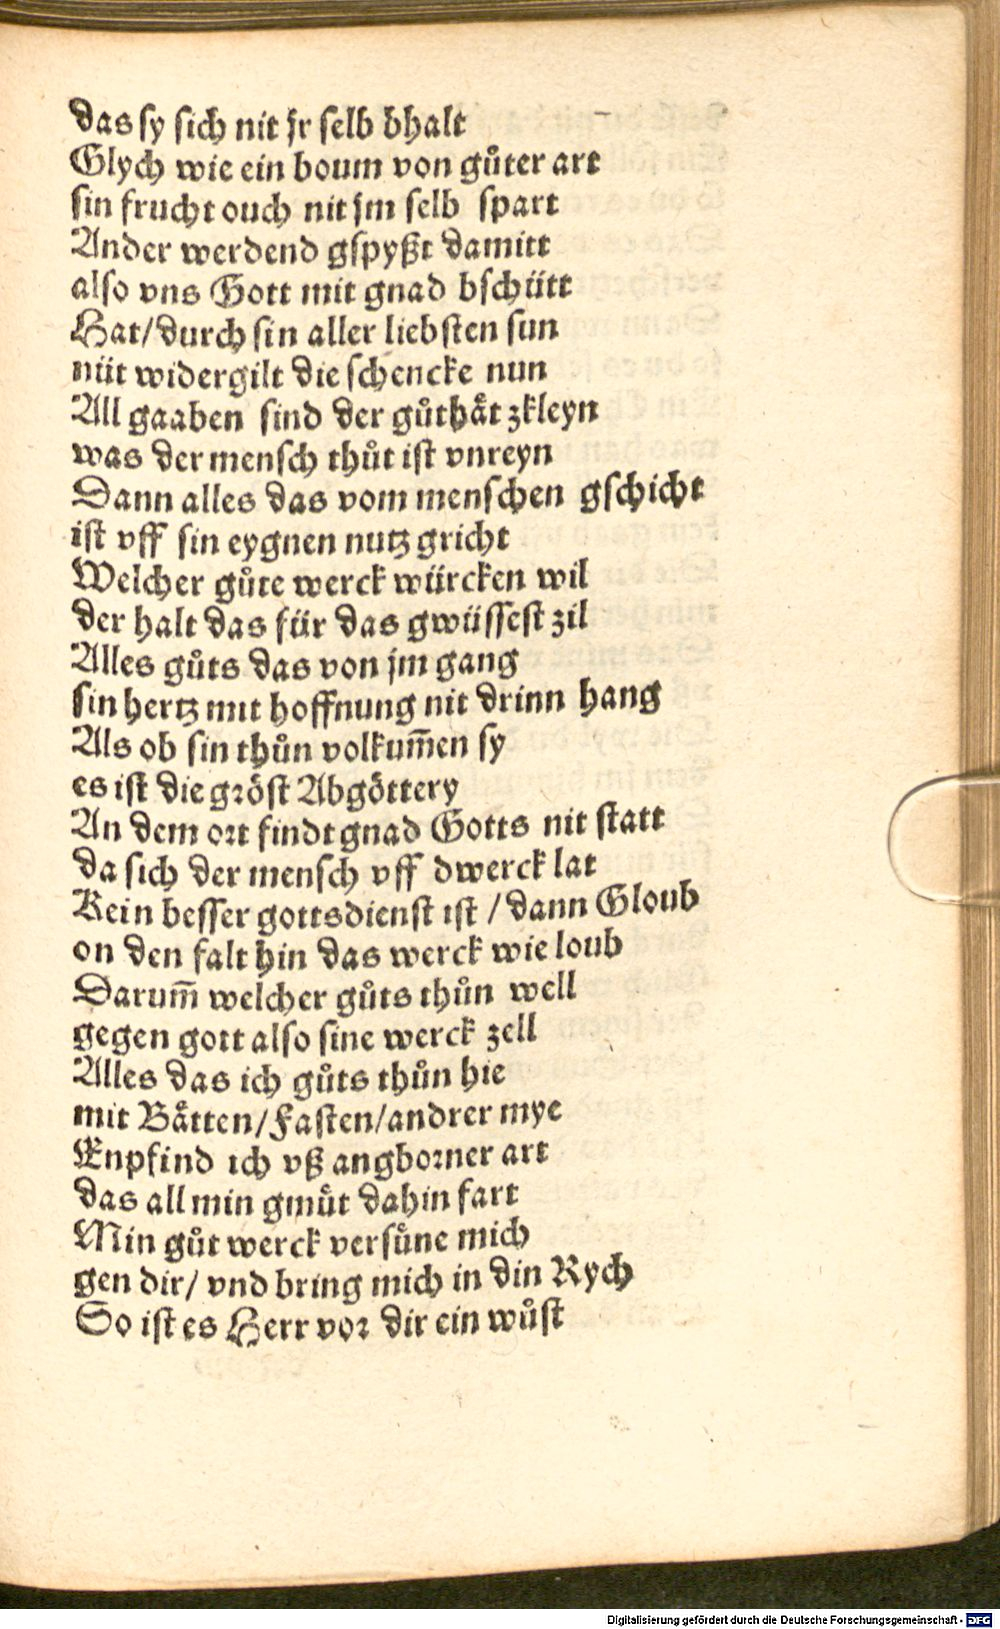 das sy sich nit jr selb bhalt
Glych wie ein boum von gůter art
sin frucht ouch nit jm selb spart
Ander werdend gspyßt damitt
also vns Gott mit gnad bschütt
Hat/durch sin aller liebsten sun
nüt widergilt die schencke nun
All gaaben sind der gůthåt zkleyn
was der mensch thůt ist vnreyn
Dann alles das vom menschen gschicht
ist vff sin eygnen nutz gricht
Welcher gůte werck würcken wil
der halt das für das gwüssest zil
Alles gůts das von jm gang
sin hertz mit hoffnung nit drinn hang
Als ob sin thůn volkum̃en sy
es ist die gröst Abgöttery
An dem ort findt gnad Gotts nit statt
da sich der mensch vff dwerck lat
Kein besser gottsdienst ist / dann Gloub
on den falt hin das werck wie loub
Darum̃ welcher gůts thůn well
gegen gott also sine werck zell
Alles das ich gůts thůn hie
mit Båtten/Fasten/andrer mye
Enpfind ich vß angborner art
das all min gmůt dahin fart
Min gůt werck versůne mich
gen dir/ vnd bring mich in din Rych
So ist es Herr vor dir ein wůst
Digitalisierung gefördert durch die Deutsche Forschungsgemeinschaft - DFG